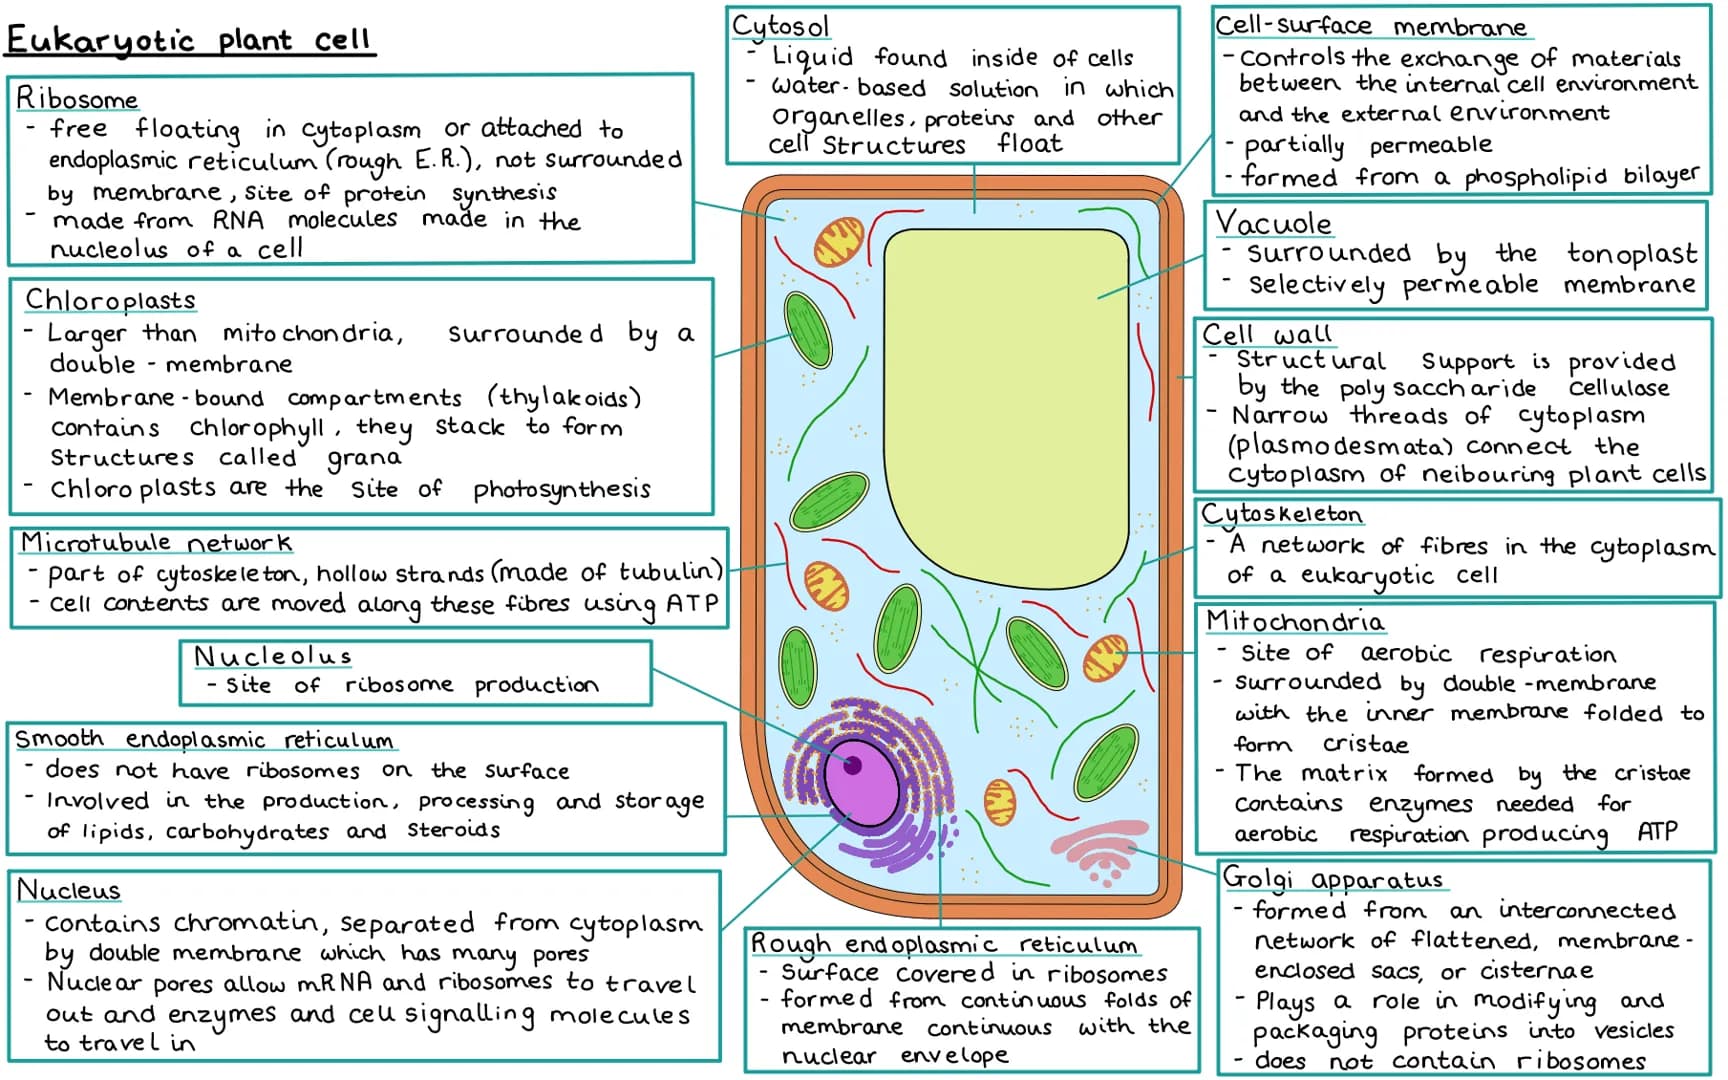 Eukaryotic plant cell
Ribosome
- free floating in cytoplasm or attached to
endoplasmic reticulum (rough E.R.), not surrounded
by membrane, site of protein synthesis
- made from RNA molecules made in the
nucleolus of a cell
Chloroplasts
- Larger than mitochondria, surrounded by a
double - membrane
- Membrane-bound compartments (thylakoids)
contains chlorophyll, they stack to form
structures called grana
- Chloroplasts are the site of photosynthesis
Microtubule network
- part of cytoskeleton, hollow strands (made of tubulin)
- cell contents are moved along these fibres using ATP
Nucleolus
- site of ribosome production
Smooth endoplasmic reticulum
- does not have ribosomes on the surface
- Involved in the production, processing and storage
of lipids, carbohydrates and steroids
Nucleus
- contains chromatin, separated from cytoplasm
by double membrane which has many pores
- Nuclear pores allow mRNA and ribosomes to travel
out and enzymes and cell signalling molecules
to travel in
Cytosol
- Liquid found inside of cells
- water-based solution in which
organelles, proteins and other
cell structures float
Rough endoplasmic reticulum
- Surface covered in ribosomes
- formed from continuous folds of
membrane continuous with the
nuclear envelope
Cell-surface membrane
- controls the exchange of materials
between the internal cell environment
and the external environment
- partially permeable
- formed from a phospholipid bilayer
Vacuole
- surrounded by the tonoplast
- selectively permeable membrane
Cell wall
- Structural support is provided
by the polysaccharide cellulose
- Narrow threads of cytoplasm
(plasmodesmata) connect the
cytoplasm of neibouring plant cells
Cytoskeleton
- A network of fibres in the cytoplasm
of a eukaryotic cell
Mitochondria
- site of aerobic respiration
- surrounded by double-membrane
with the inner membrane folded to
form cristae
- The matrix formed by the cristae
contains enzymes needed for
aerobic respiration producing ATP
Golgi apparatus
- formed from an interconnected
network of flattened, membrane-
enclosed sacs, or cisternae
- Plays a role in modifying and
packaging proteins into vesicles
- does not contain ribosomes